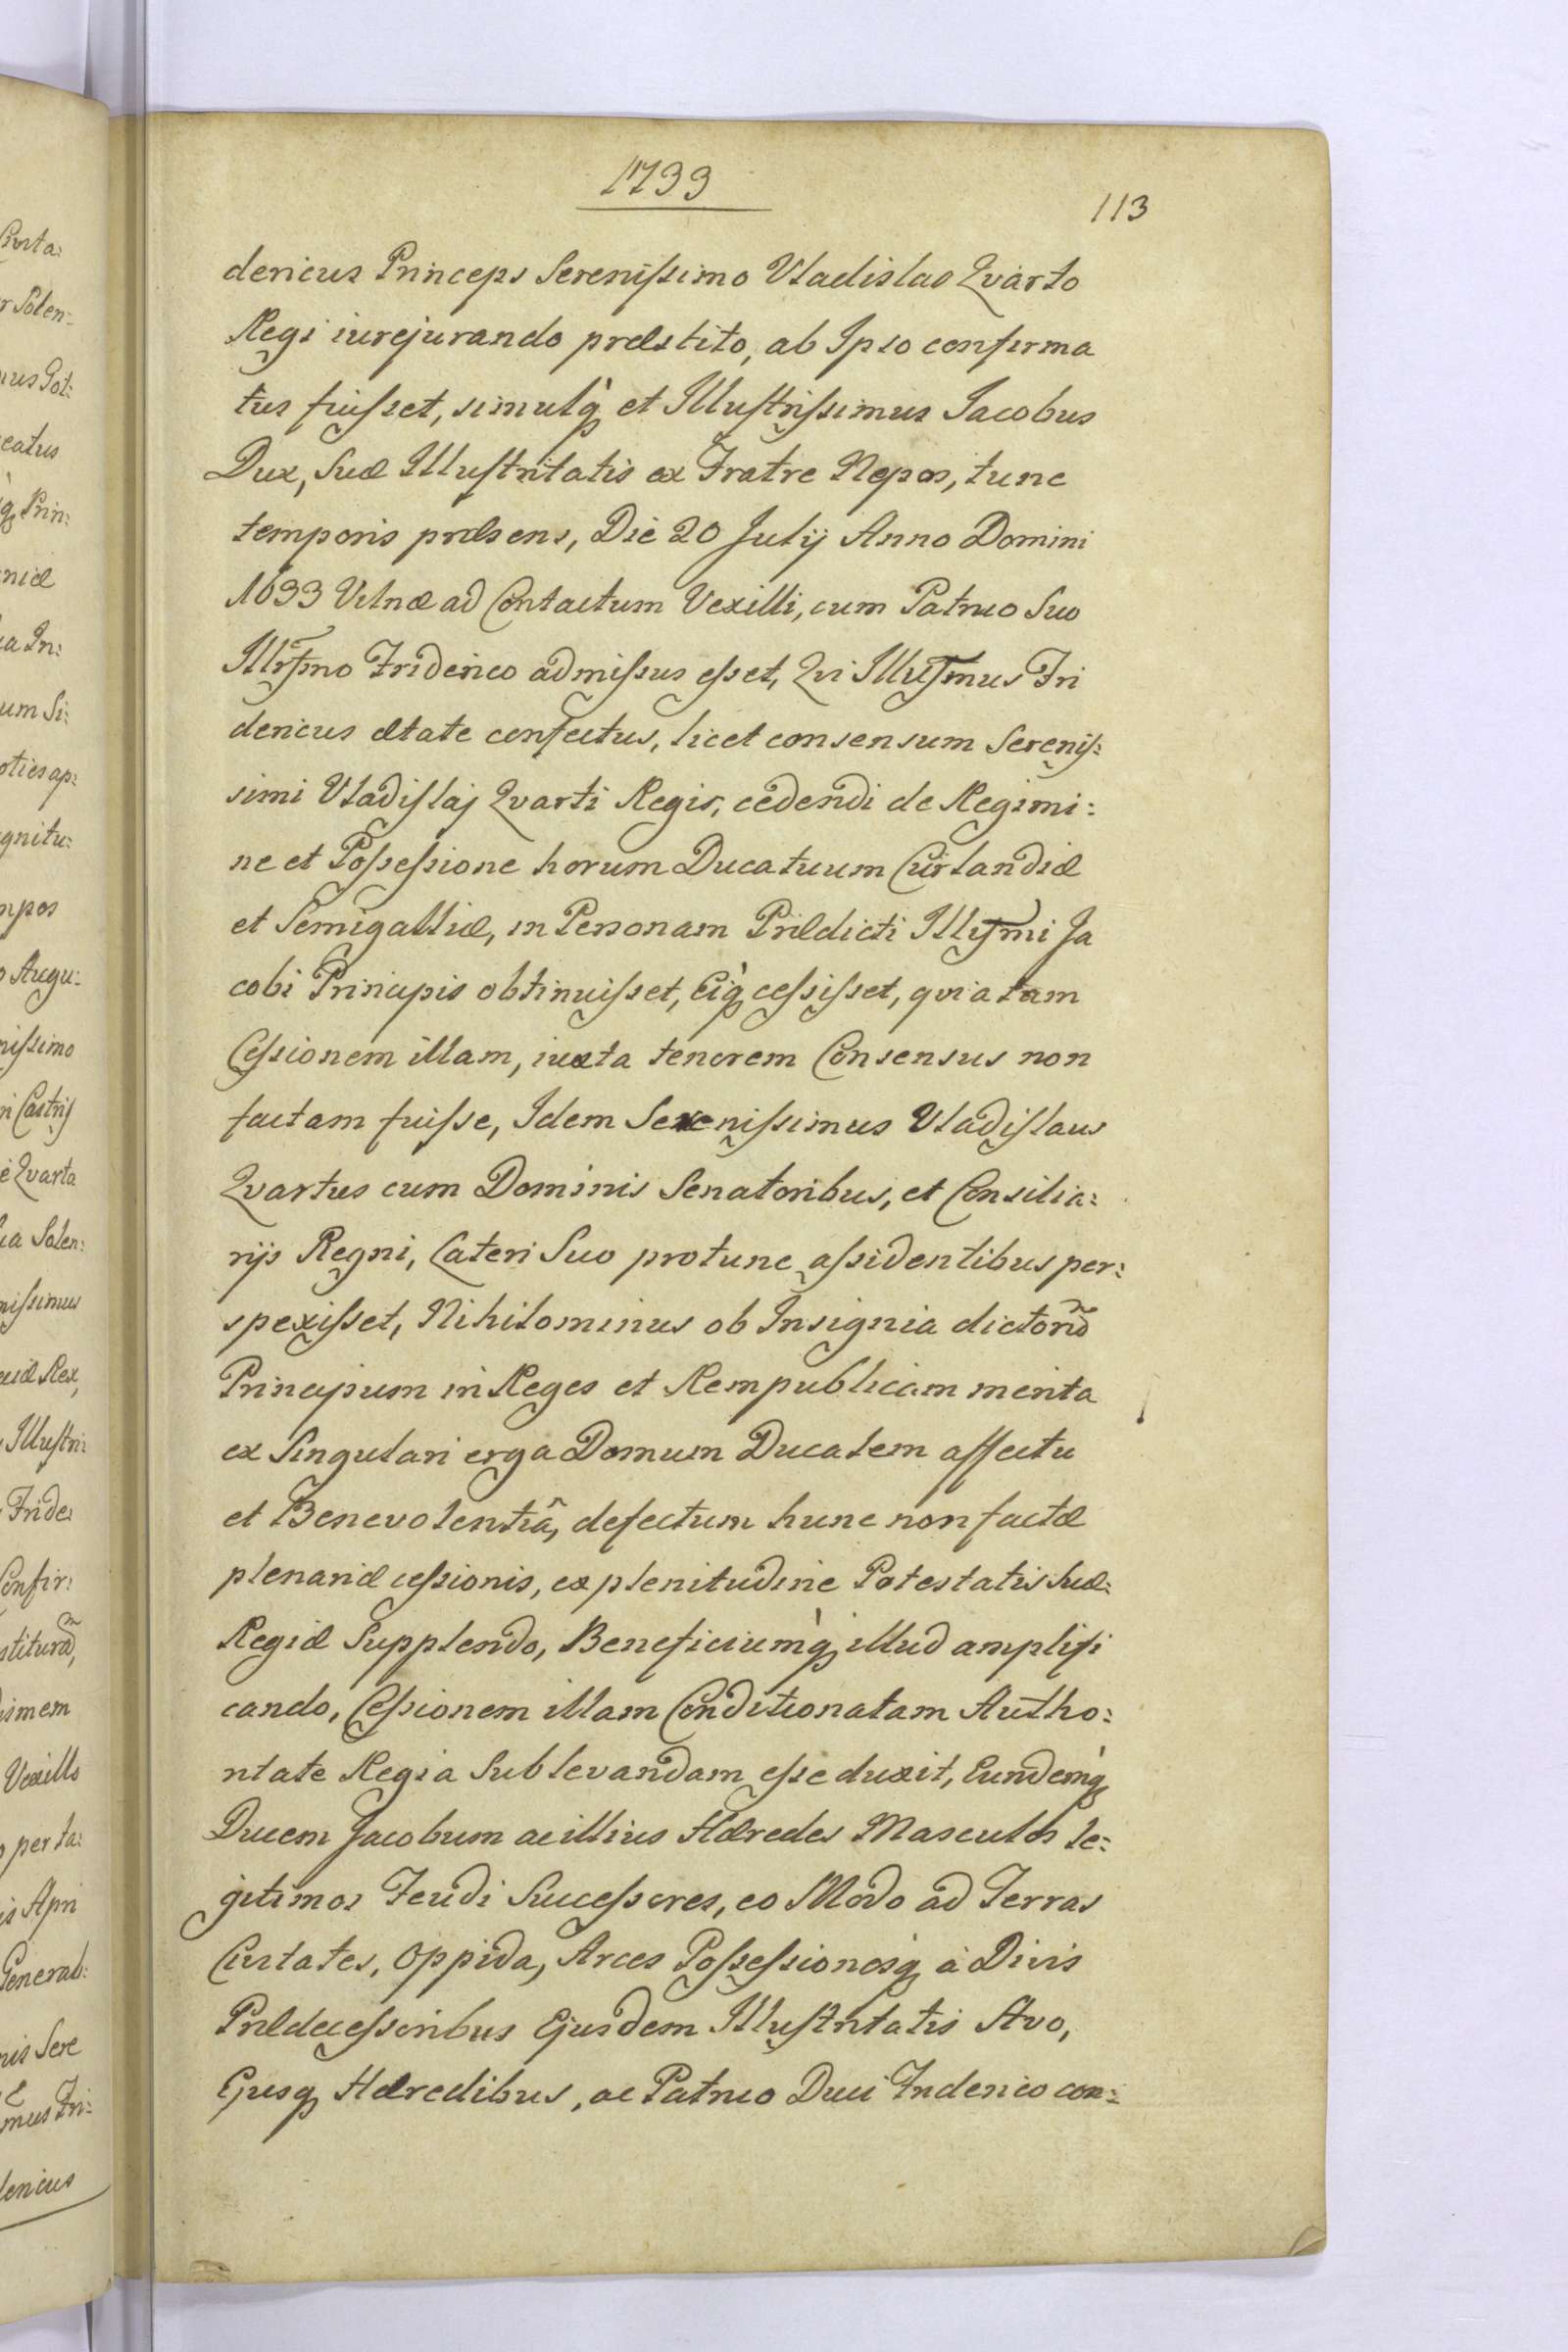 1733
113
dericus Princeps Serenissimo Vladislao Qvarto
Regi iurejurando præstito, ab Ipso confirma
tus fuisset, simulq̀ et Illustrissimus Jacobus
Dux, Suæ Illustritatis ex Fratre Nepos, tunc
temporis præsens, Die 20 Julij Anno Domini
1633 Vilnæ ad Contactum Vexilli, cum Patruo Suo
Illrs̄mo Friderico admissus esset, Qvi Illus̄mus Fri
dericus ætate confectus, licet consensum Serenis:
simi Vladislaj Qvarti Regis, cedendi de Regimi:
ne et Possessione horum Ducatuum Curlandiæ
et Semigalliæ, in Personam Prædicti Illus̄mi Ja
cobi Principis obtinuisset, Eiq̀ cessisset, qvia tam
Cessionem illam, iuxta tenorem Consensus non
factam fuisse, Idem Serenissimus Vladislaus
Qvartus cum Dominis Senatoribus, et Consilia:
rijs Regni, Lateri Suo protunc assidentibus per:
spexisset, Nihilominus ob Insignia dictorũ
Principum in Reges et Rempublicam merita
ex Singulari erga Domum Ducalem affectu
et Benevolentiâ, defectum hunc non factæ
plenariæ cessionis, ex plenitudine Potestatis Suæ
Regiæ Supplendo, Beneficiumq̀ illud amplifi
cando, Cessionem illam Conditionatam Autho:
ritate Regia Sublevandam esse duxit, Eundemq̀
Ducem Jacobum ac illius Hæredes Masculos le:
gitimos Feudi Successores, eo Modo ad Terras
Civitates, Oppida, Arces Possessionesq̀ à Divis
Prædecessoribus Ejusdem Illustritatis Avo,
Ejusq̀ Hæredibus, ac Patruo Duci Friderico con: